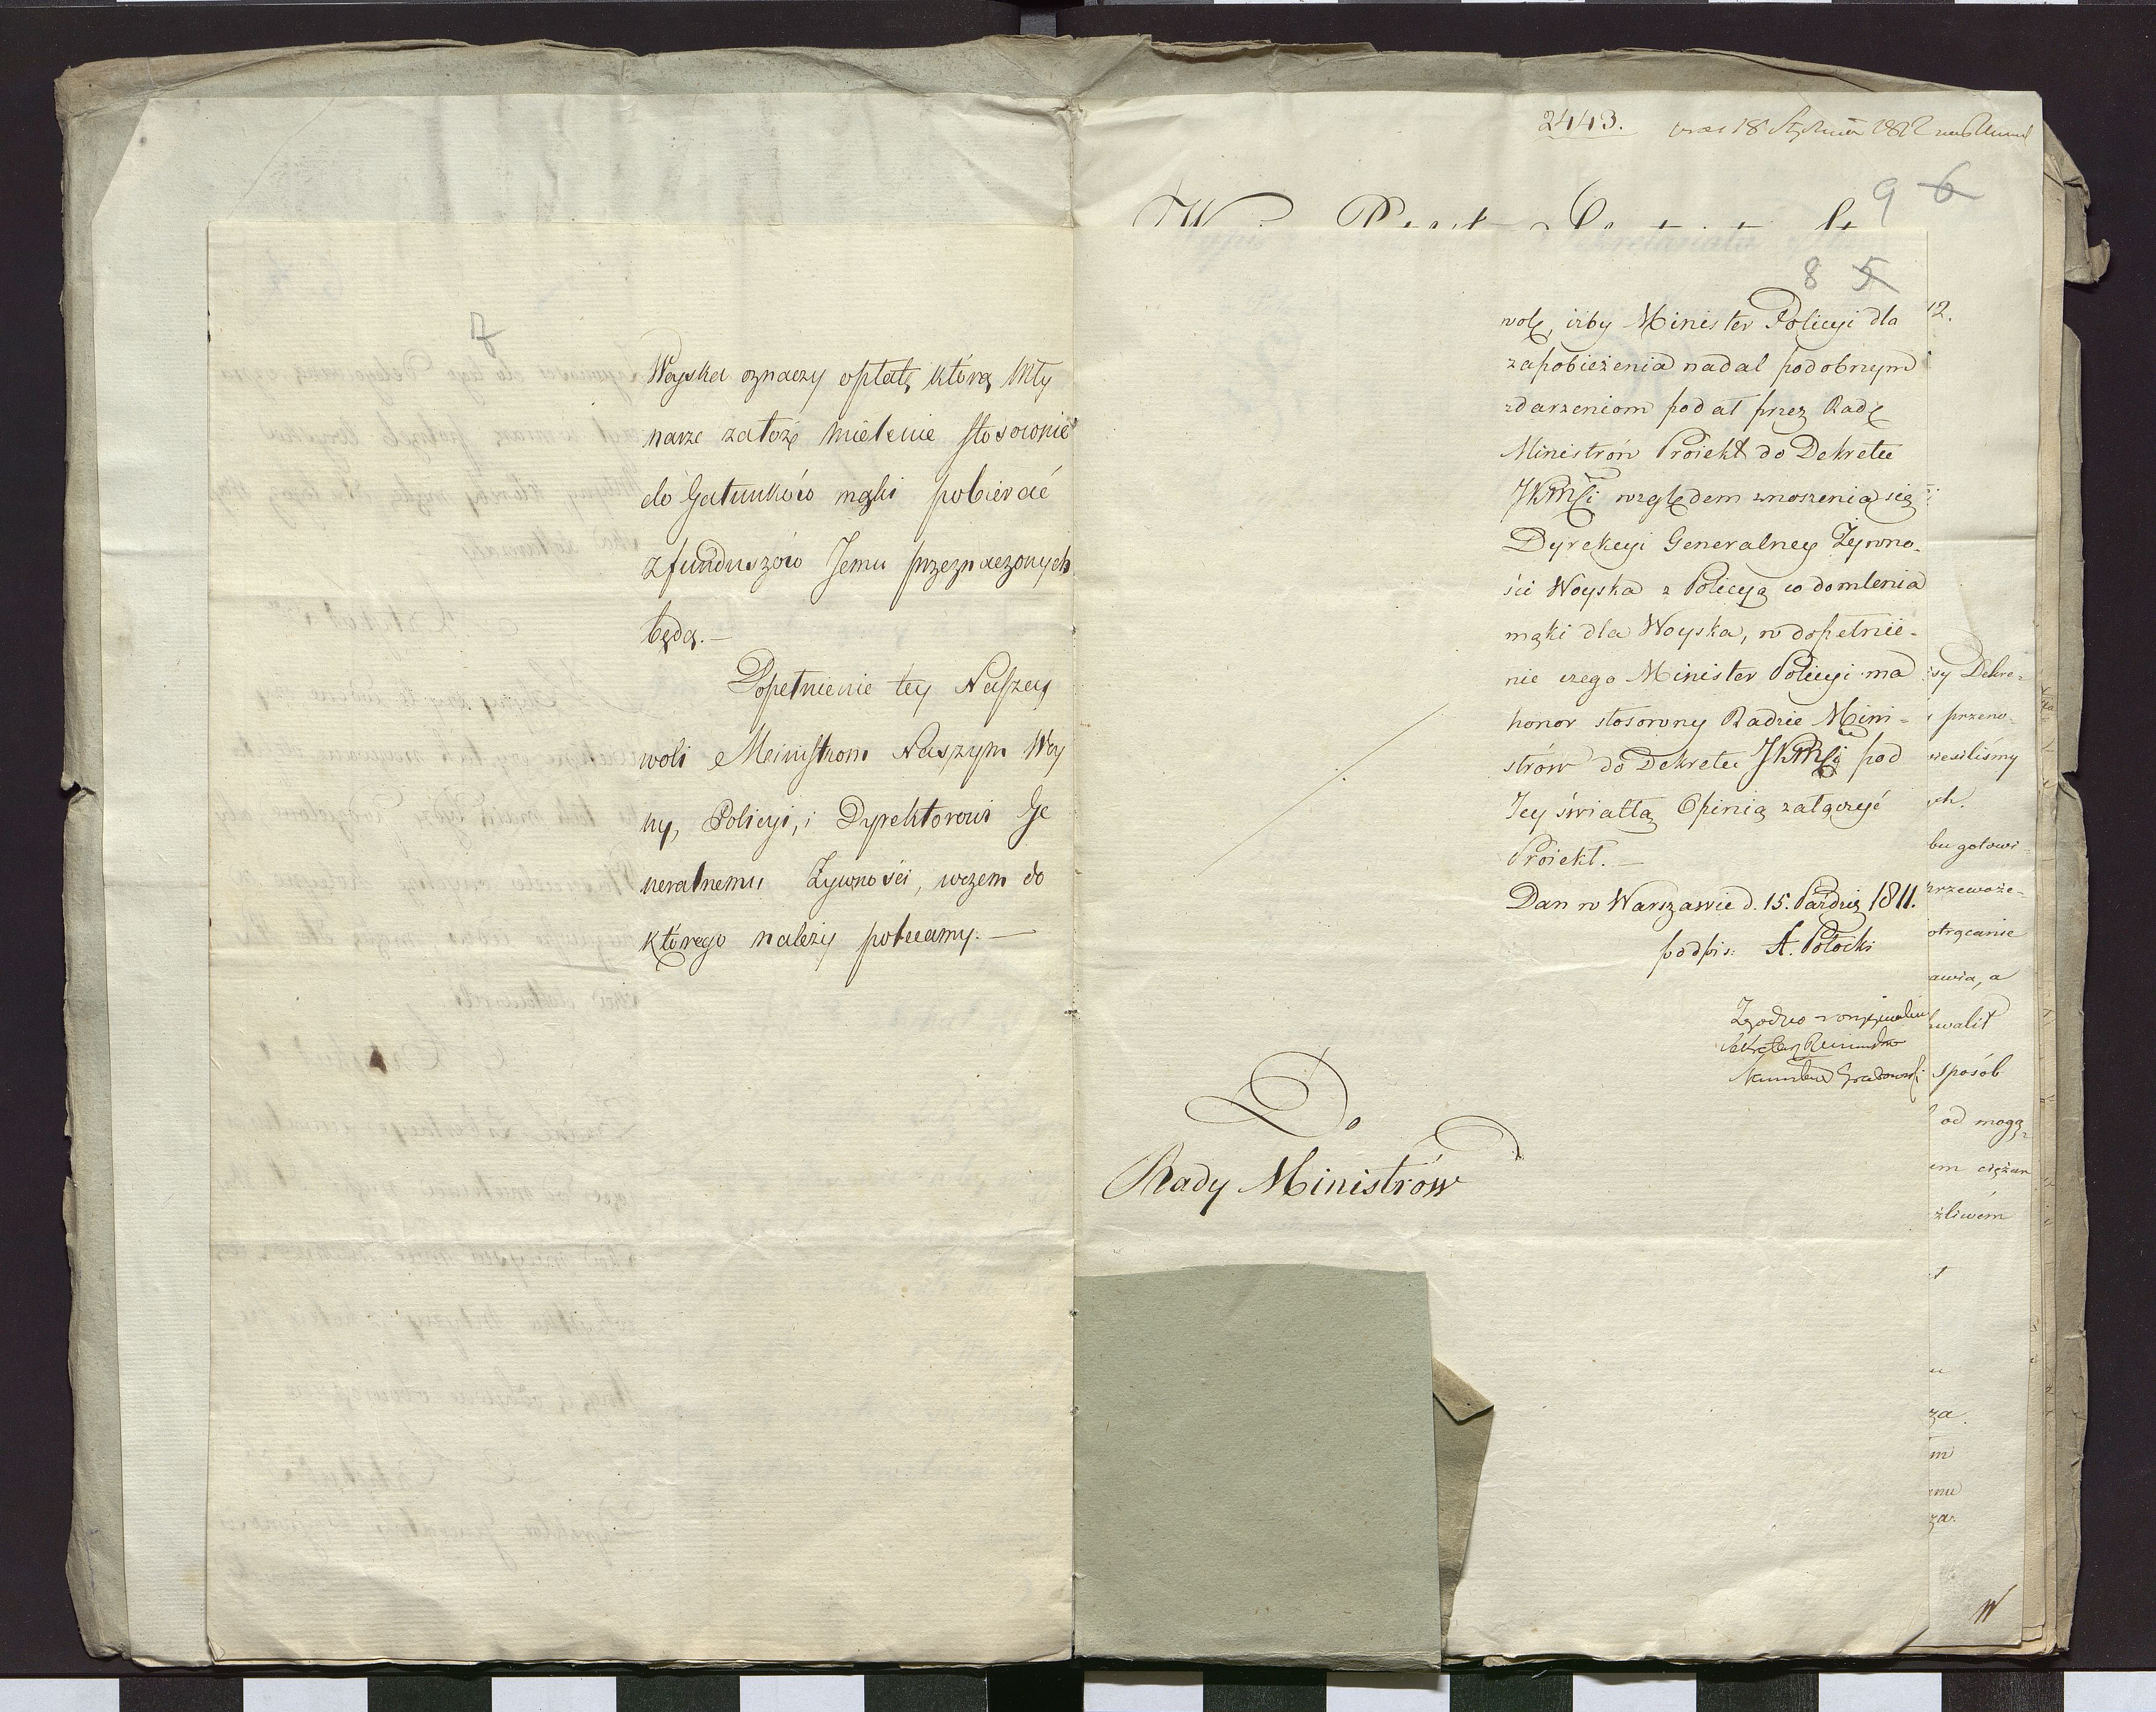 7
Woyska oznaczy opłatę którą Mły
narze zatoż mielenie stosownie
do Gatunków mąki pobierać
z funduszów Jemu przeznaczonych
będą.—
Dopełnienie tey Naszey
woli Ministrom Naszym Woy
ny, Policyi, i Dyrektorowi Ge
neralnemu Żywności, wczem do
którego należy polecamy.—
2443.
18 Stycznia 1812
9 6
8 5
wolę, iżby Minister Policyi dla
zapobieżenia nadal podobnym
zdarzeniom podał przez Radę
Ministrów Proiekt do Dekretu
JKMSi względem znoszenia się
Dyrekcyi Generalney Żywno-
ści Woyska z Policyą co do mlenia
mąki dla Woyska, w dopełnie-
nie czego Minister Policyi ma
honor stosowny Radzie Mini-
strów do Dekretu JKMSi pod
Jey światłą Opinią załączyć
Proiekt.—
Dan w Warszawie d. 15. Paździer 1811.
podpis: A. Potocki
Zgodno z oryginałem
Sekretarz R Ministrów
Do
Rady Ministrów
12.
sy Dekre-
przeno-
ych.
bu gotowi
przewoże-
otrącanie
awia, a
hwalił
sposób
od mogą-
em ciężar
żliwem
za.
m
anu
za.
W